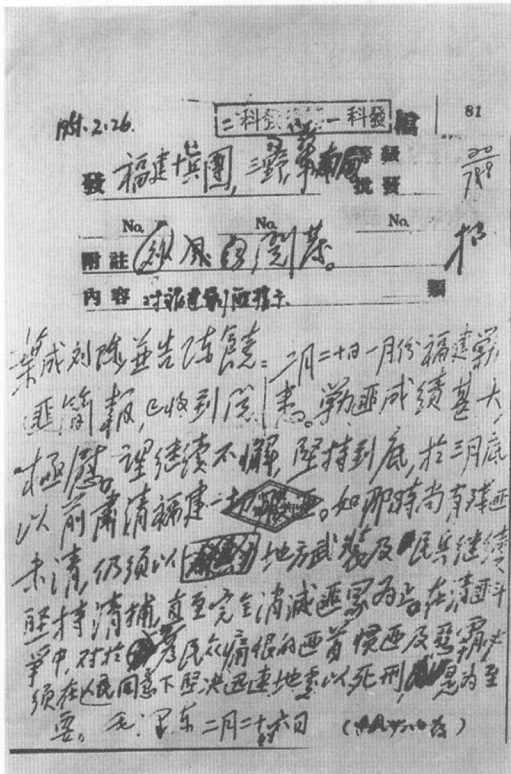 1951.2.26.
二科發 一科發
81
發 福建十兵團, 三野, 華南局 等級 批發
20/789
No. No. No.
附註
內容 類
葉成刘陈並告陈饒: 二月二十日一月份福建剿
匪簡報,已收到閱悉。剿匪成績甚大,
極慰。望継续不懈,堅持到底,於三月底
以前肃清福建一切
。如那時尚有殘匪
未清,仍须以 地方武裝及民兵継续
堅持清捕,直至完全消滅匪眾為止。在清匪斗
爭中,对於為民众痛恨的匪首慣匪及惡霸必
须在人民同意下堅决迅速地處以死刑,是为至
要。 毛泽东 二月二十六日